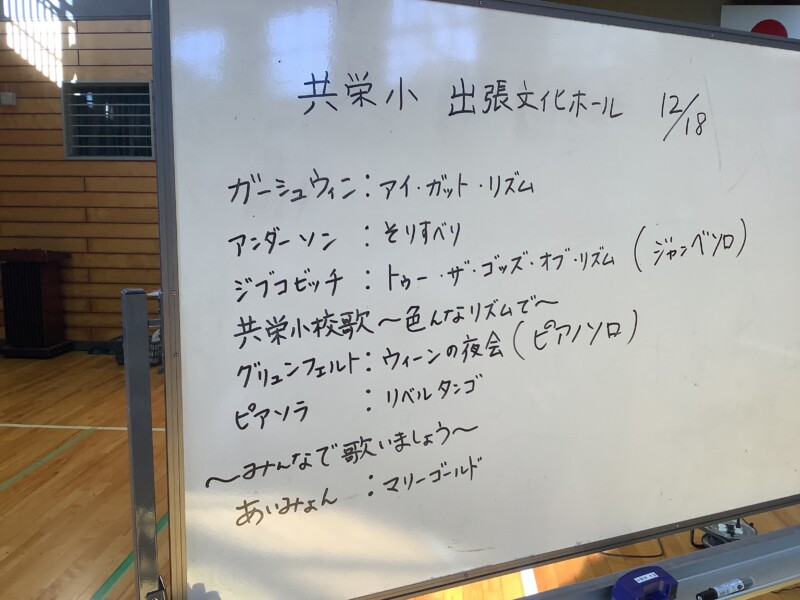 共栄小 出張文化ホール 12/18
ガーシュウィン：アイ・ガット・リズム
アンダーソン ：そりすべり
ジブコビッチ：トゥー・ザ・ゴッズ・オブ・リズム（ジャンベソロ）
共栄小校歌〜色んなリズムで〜
グリュンフェルト：ウィーンの夜会（ピアノソロ）
ピアソラ ：リベルタンゴ
〜みんなで歌いましょう〜
あいみょん ：マリーゴールド